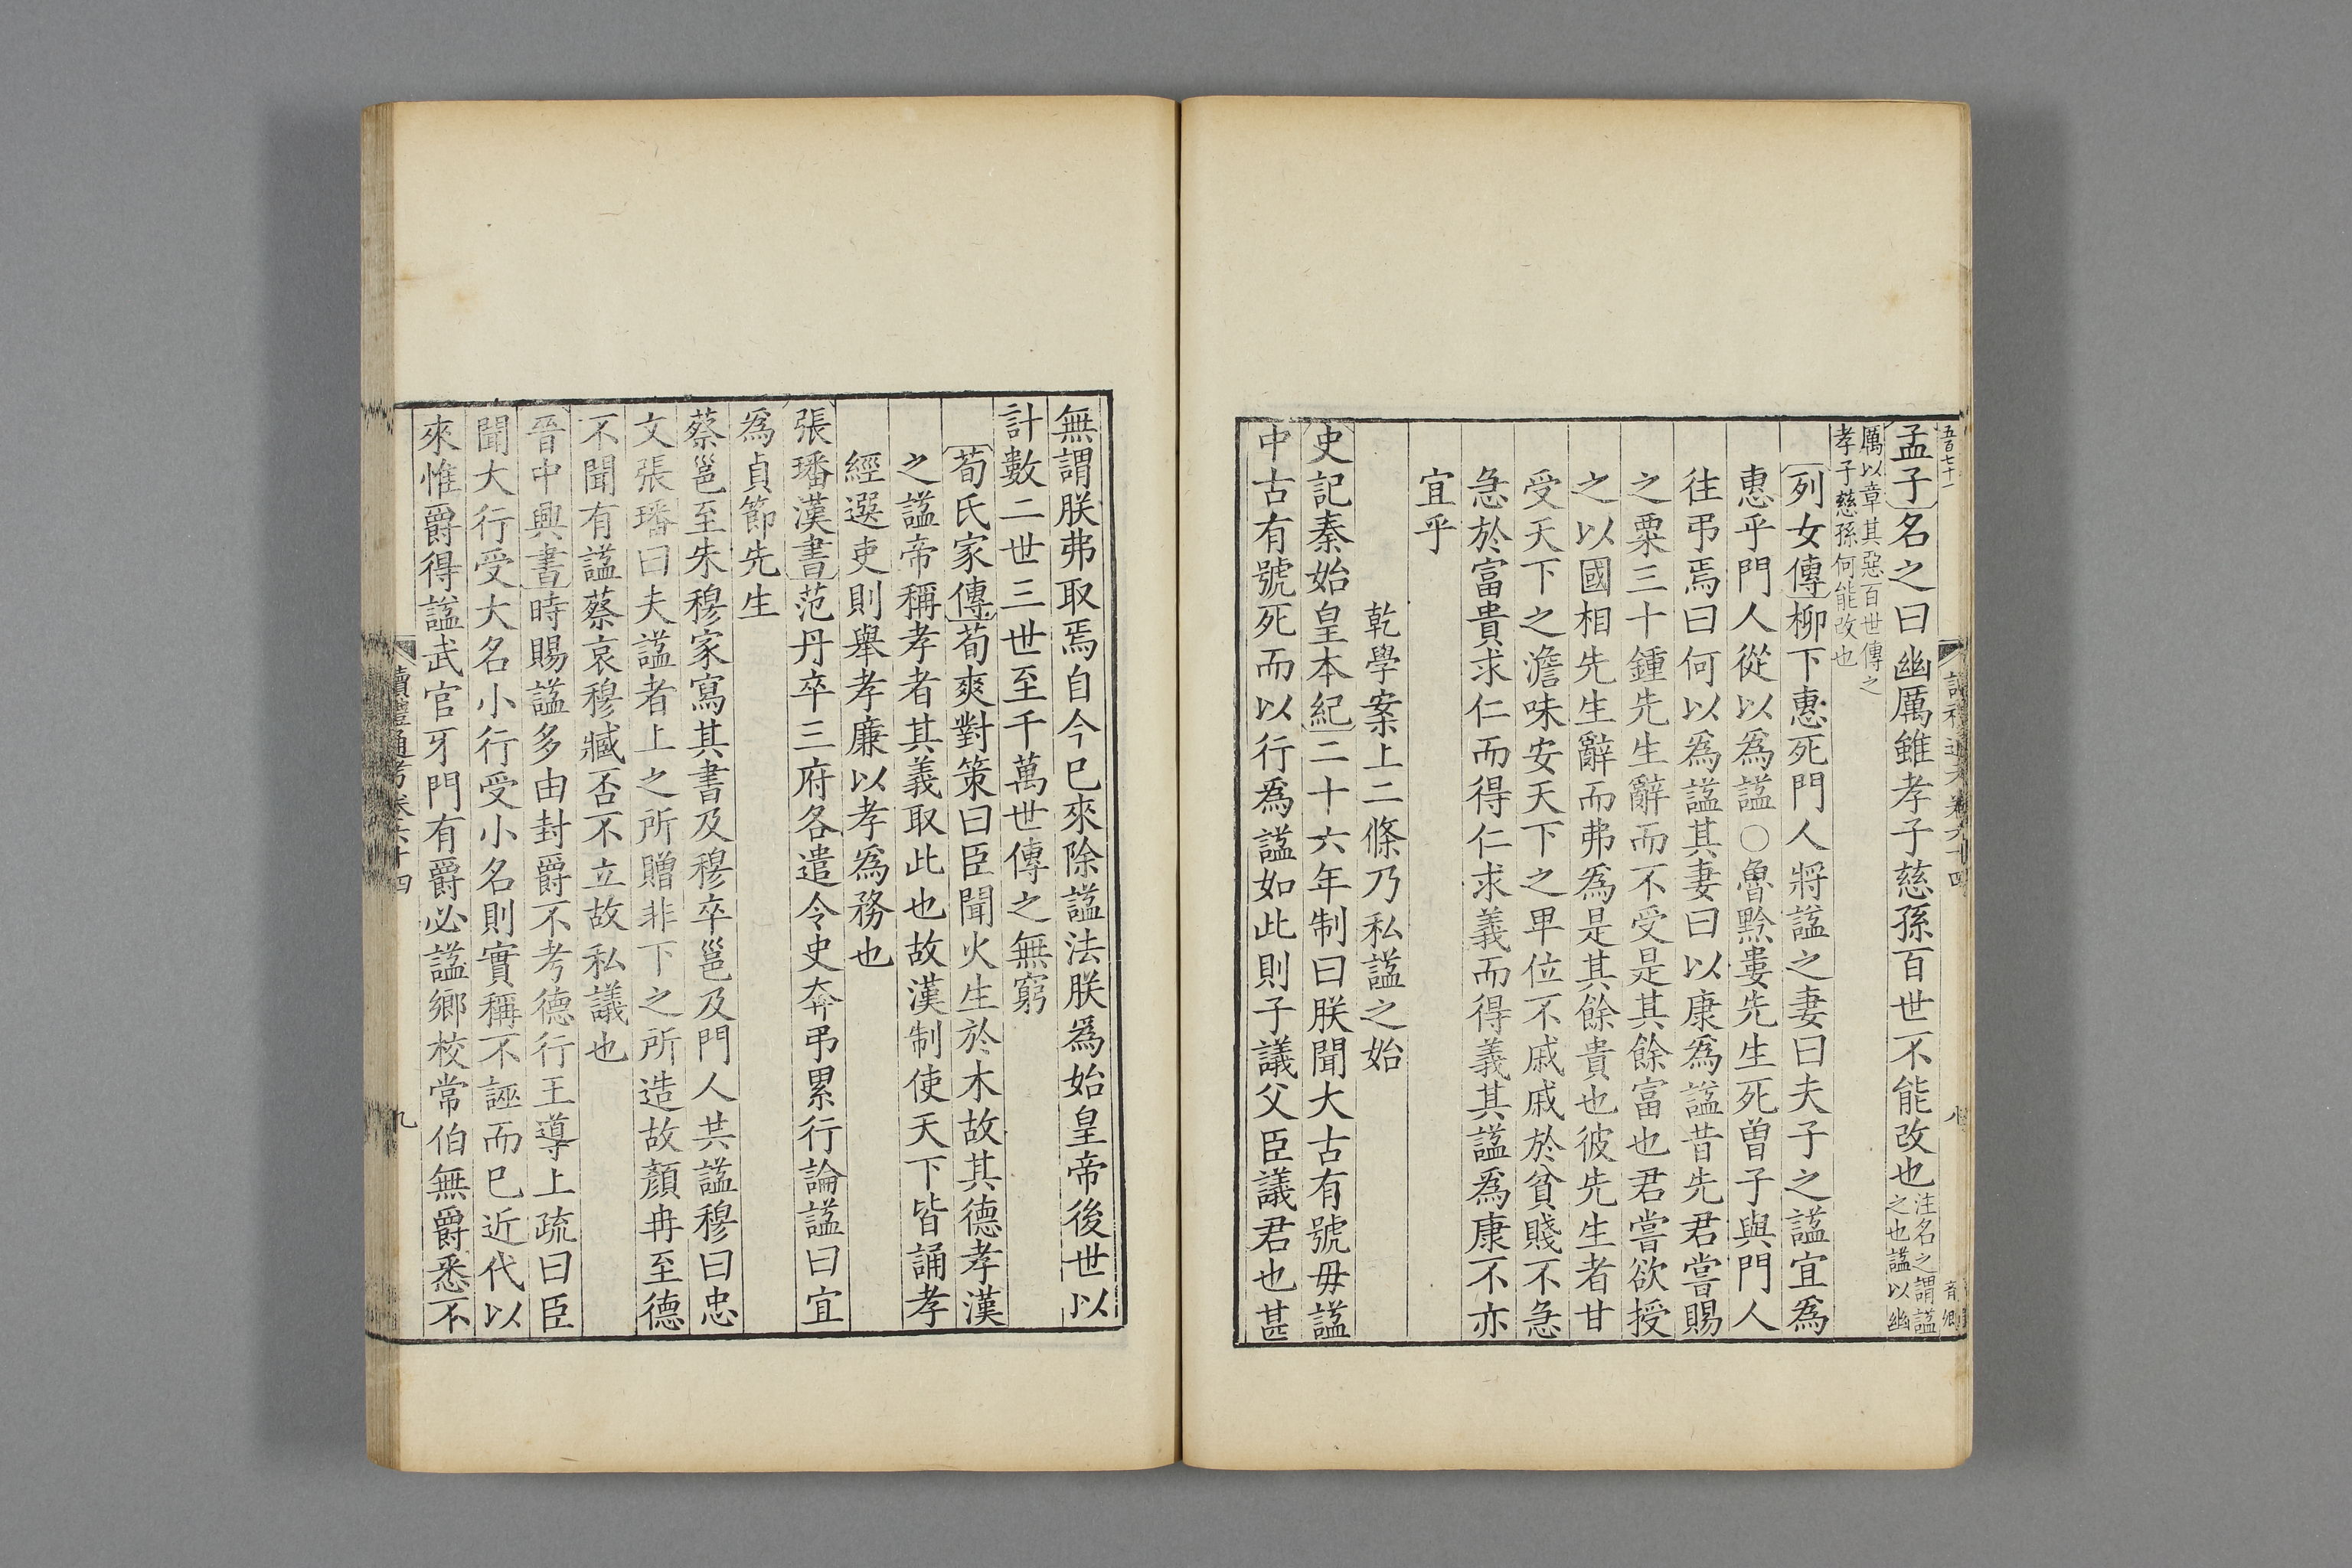 孟子名之曰幽厲雖孝子慈孫百世不能改也注名之謂謚之也謚以幽
厲以章其惡百世傳之孝子慈孫何能改也
列女傳柳下惠死門人將謚之妻曰夫子之謚宜爲
惠乎門人從以爲謚○魯黔婁先生死曾子與門人
往弔焉曰何以爲謚其妻曰以康爲謚昔先君嘗賜
之粟三十鍾先生辭而不受是其餘富也君嘗欲授
之以國相先生辭而弗爲是其餘貴也彼先生者甘
受天下之澹味安天下之卑位不戚戚於貧賤不急
急於富貴求仁而得仁求義而得義其謚爲康不亦
宜乎
乾學案上二條乃私謚之始
史記秦始皇本紀二十六年制曰朕聞大古有號毋謚
中古有號死而以行爲謚如此則子議父臣議君也甚
無謂朕弗取焉自今已來除謚法朕爲始皇帝後世以
計數二世三世至千萬世傳之無窮
荀氏家傳荀爽對策曰臣聞火生於木故其德孝漢
之謚帝稱孝者其義取此也故漢制使天下皆誦孝
經選吏則舉孝廉以孝爲務也
張璠漢書范丹卒三府各遣令史奔弔累行論謚曰宜
爲貞節先生
蔡邕至朱穆家寫其書及穆卒邕及門人共謚穆曰忠
文張璠曰夫謚者上之所贈非下之所造故顏冉至德
不聞有謚蔡哀穆臧否不立故私議也
晉中興書時賜謚多由封爵不考德行王導上疏曰臣
聞大行受大名小行受小名則實稱不誣而已近代以
來惟爵得謚武官牙門有爵必謚鄉校常伯無爵悉不
讀禮通考卷六十四
九